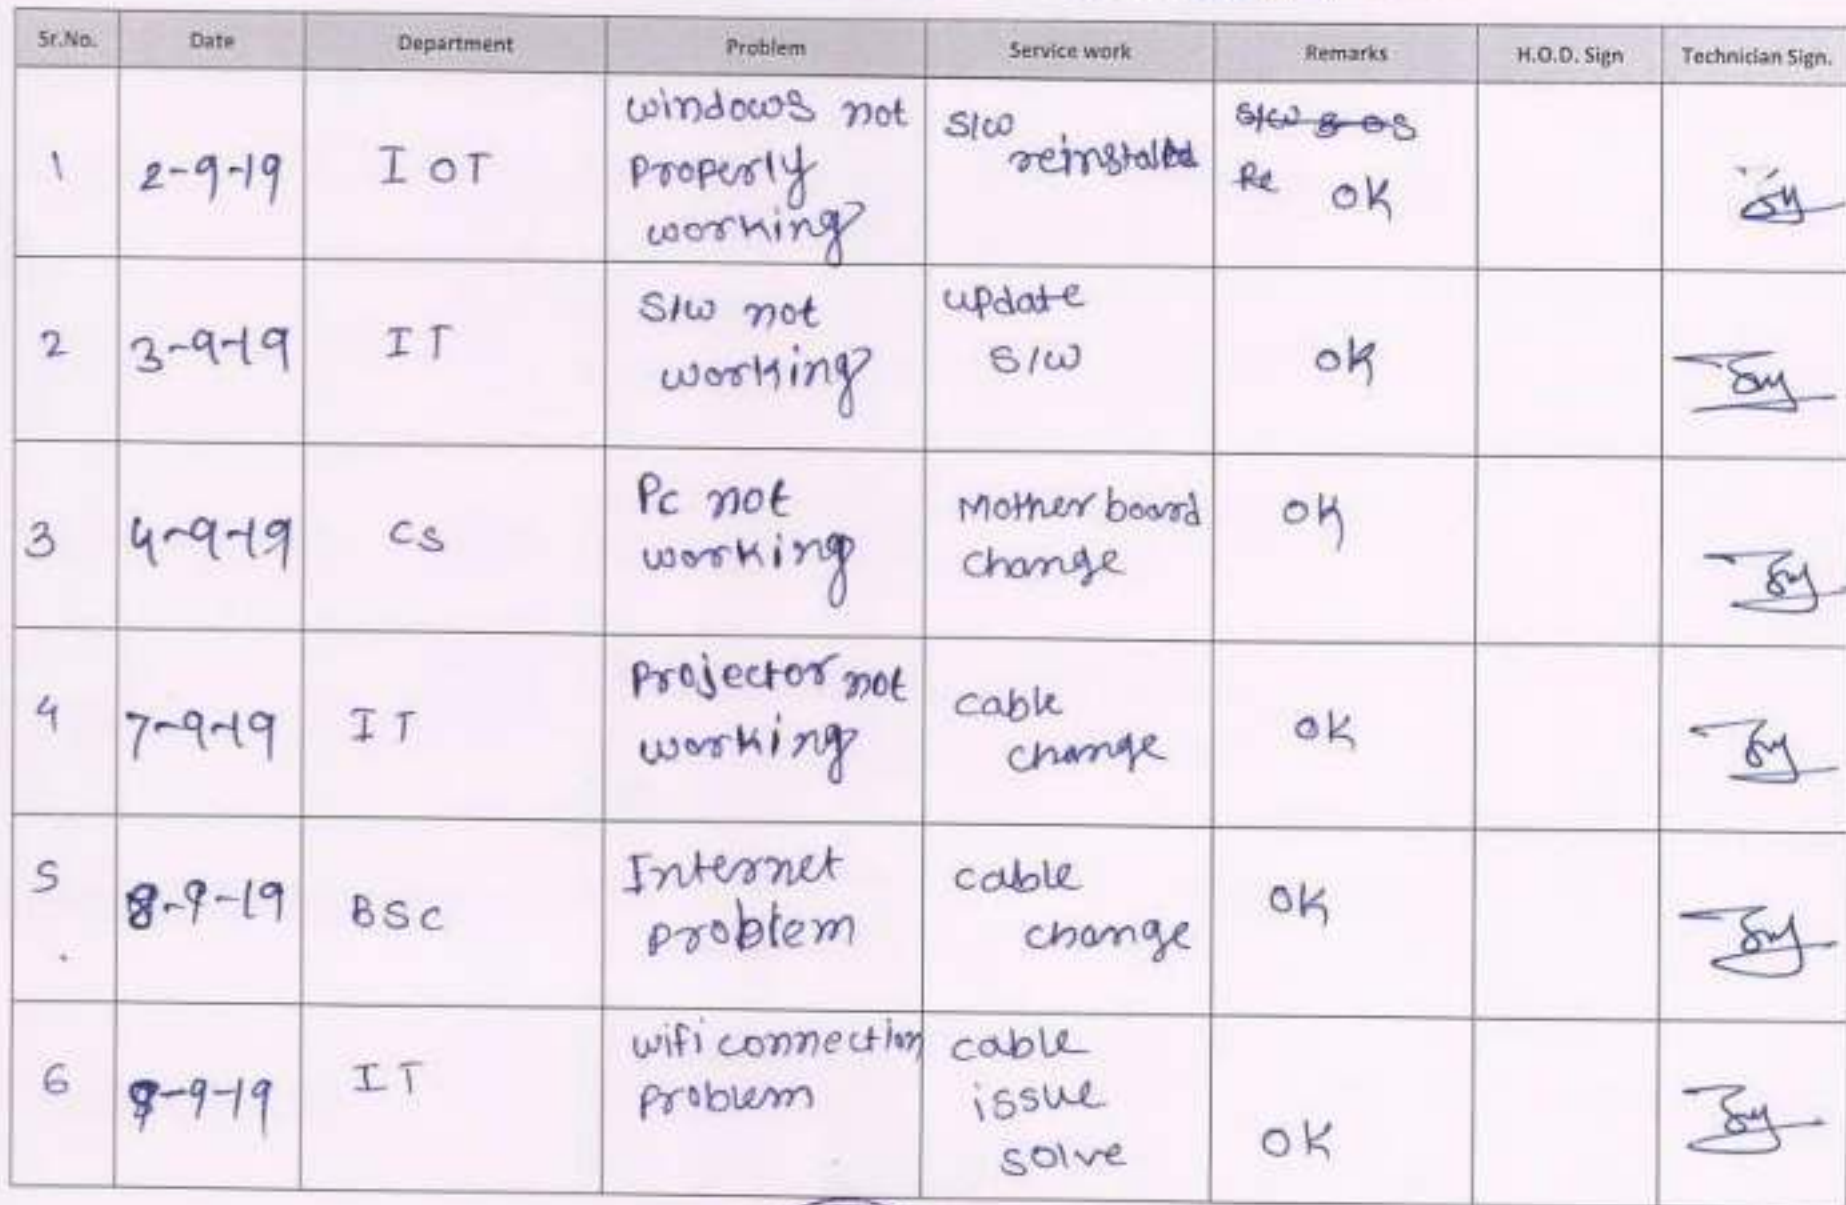 Sr.No. Date Department Problem Service work Remarks H.O.D. Sign Technician Sign.
1 2-9-19 IOT windows not properly working S/W reinstalled S/W & OS Re OK
2 3-9-19 IT S/W not working update S/W OK
3 4-9-19 CS Pc not working Mother board change OK
4 7-9-19 IT Projector not working cable change OK
5 8-9-19 BSC Internet problem cable change OK
6 9-9-19 IT wifi connection problem cable issue solve OK